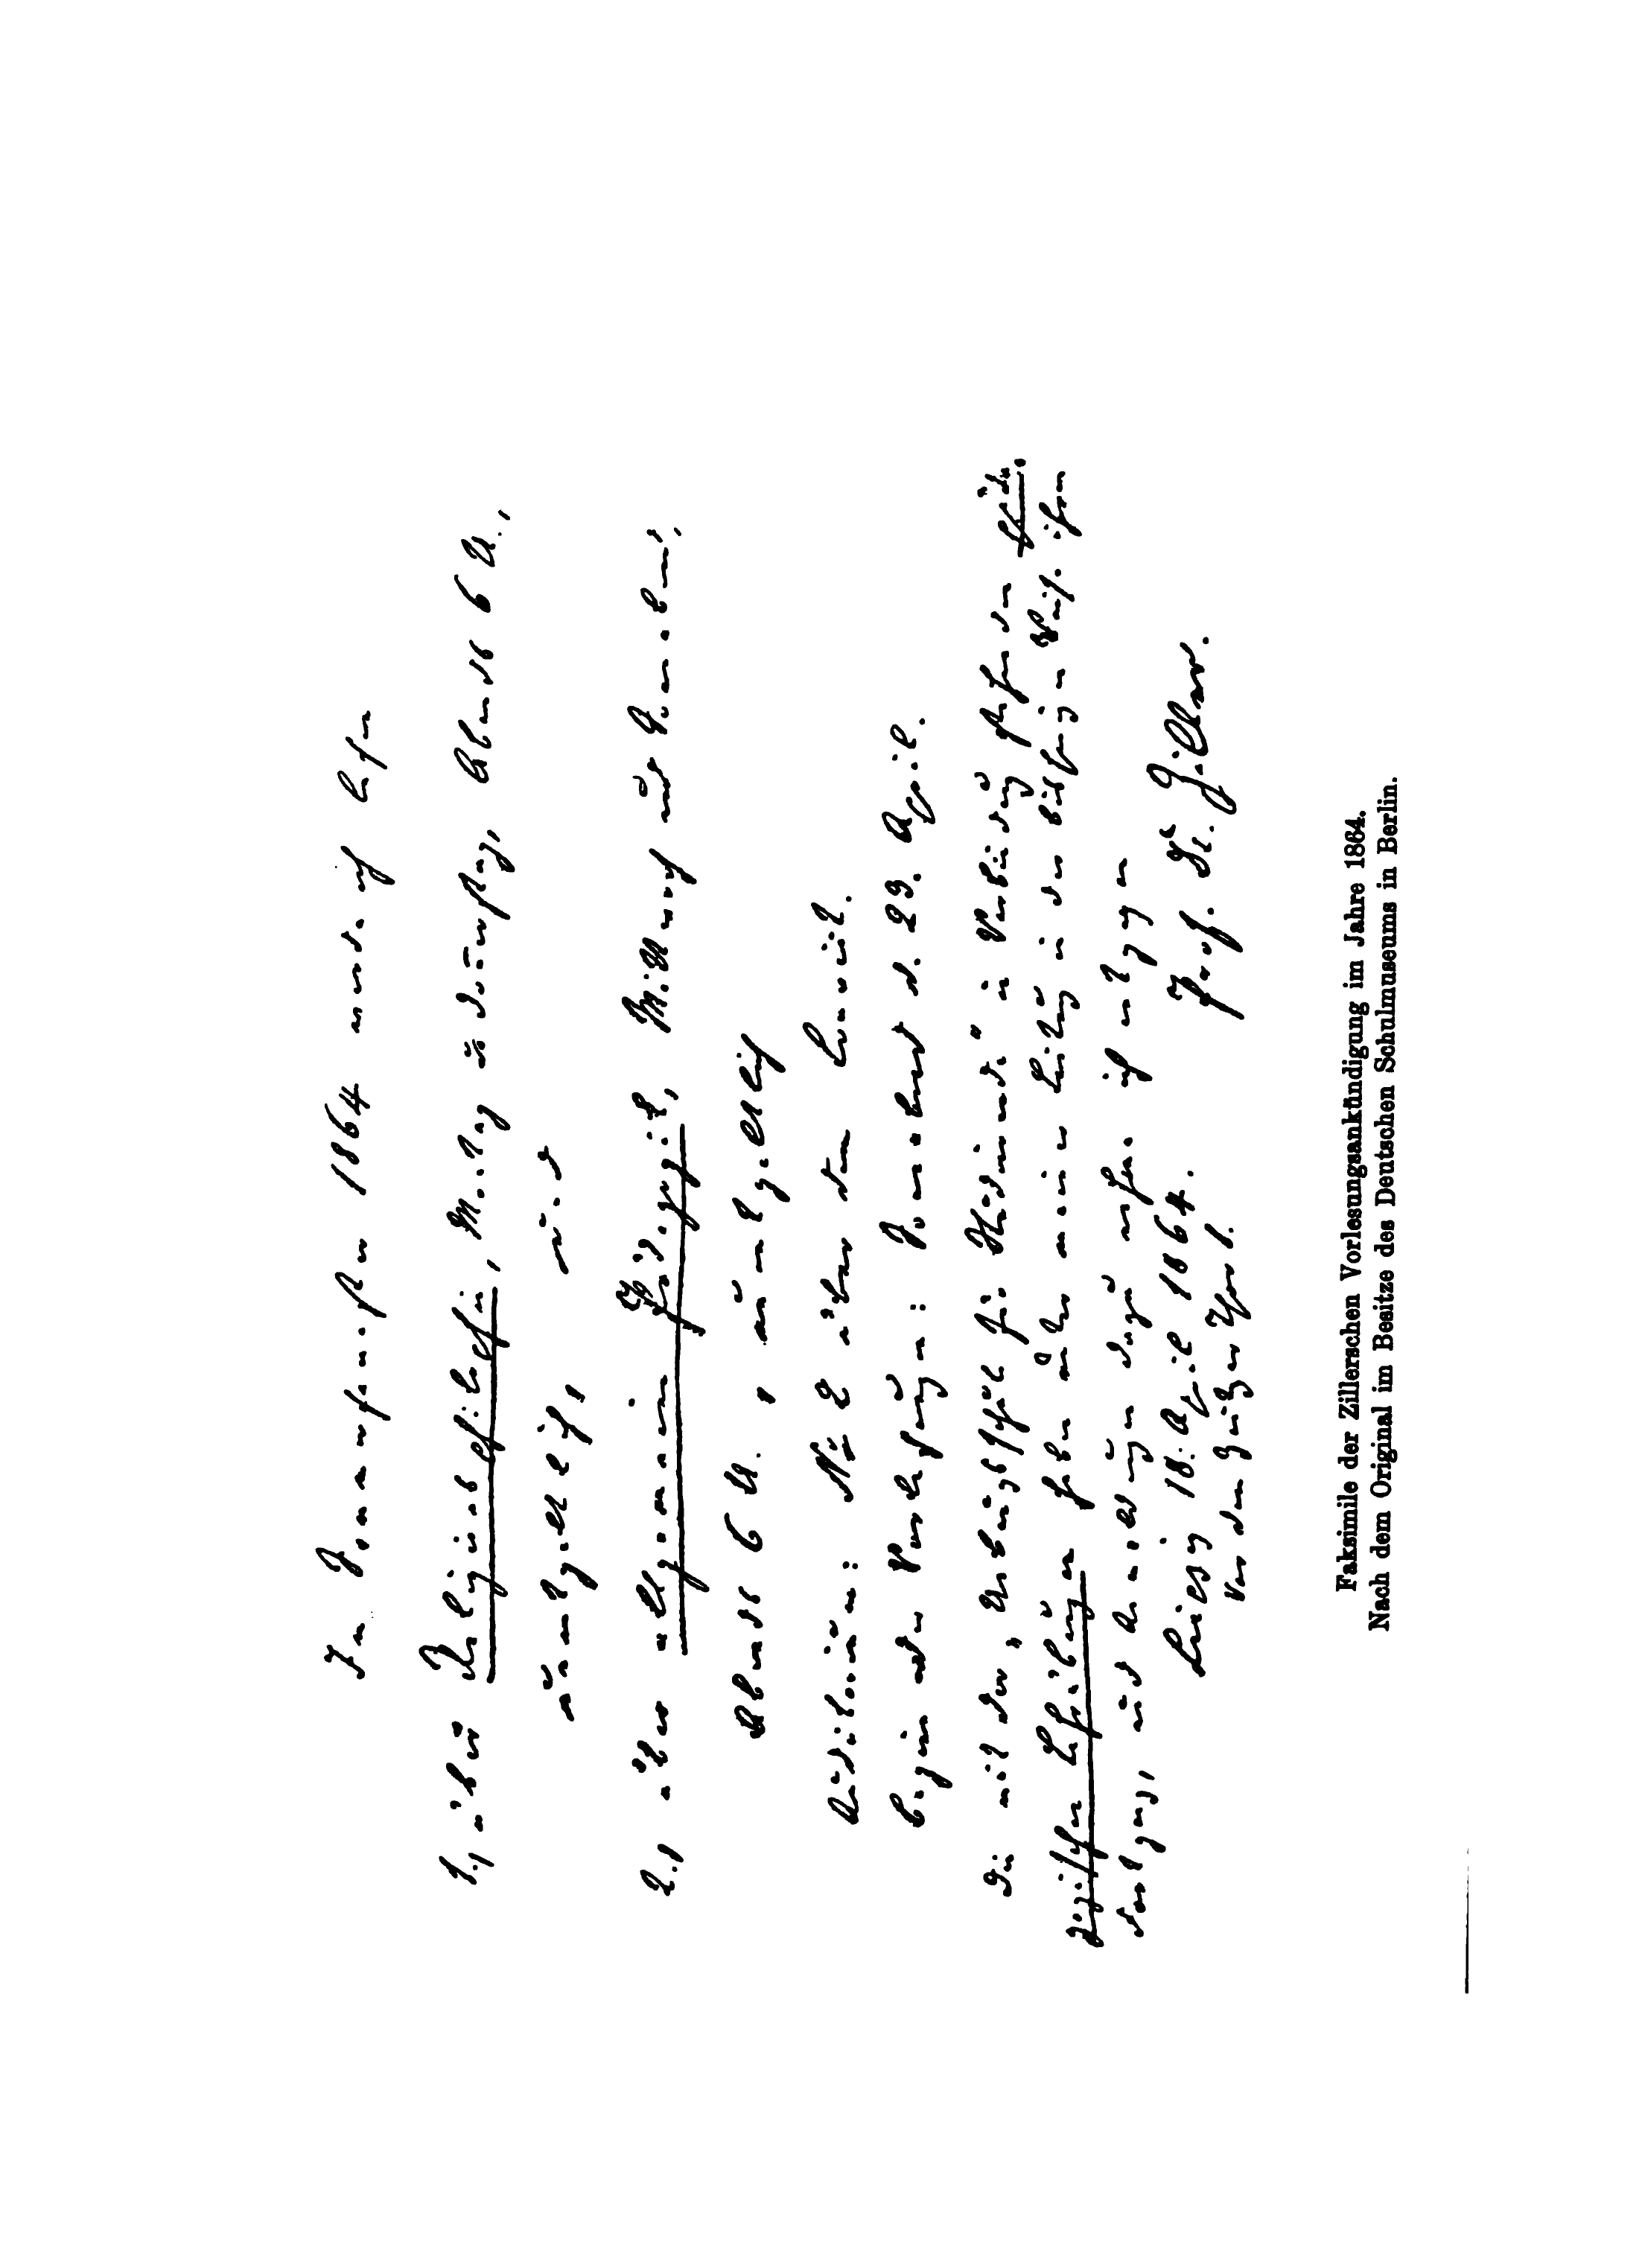 Im Sommersemester 1864 werde ich lesen
1., über Religionsphilosophie, Montag u. Dienstag, Abends 6 U.,
unentgeltlich,
und
2., über allgemeine Pädagogik, Mittwoch und Sonnabend,
Abends 6 U., unentgeltlich
Auditorium: № 2 über dem Convict.
Beginn der Vorlesungen: Sonnabend d. 23. April.
Die mit der „Übungsschule für Studirende" in Verbindung stehenden päda-
gogischen Uebungen stehen unter meiner Leitung in der bisherigen Weise ihren
Fortgang, und Anmeldungen dazu nehme ich entgegen
Leipzig 18. April 1864. Prof. Dr. Ziller.
Vor dem Zeitzer Thor
Faksimile der Zillerschen Vorlesungsankündigung im Jahre 1864.
Nach dem Original im Besitze des Deutschen Schulmuseums in Berlin.